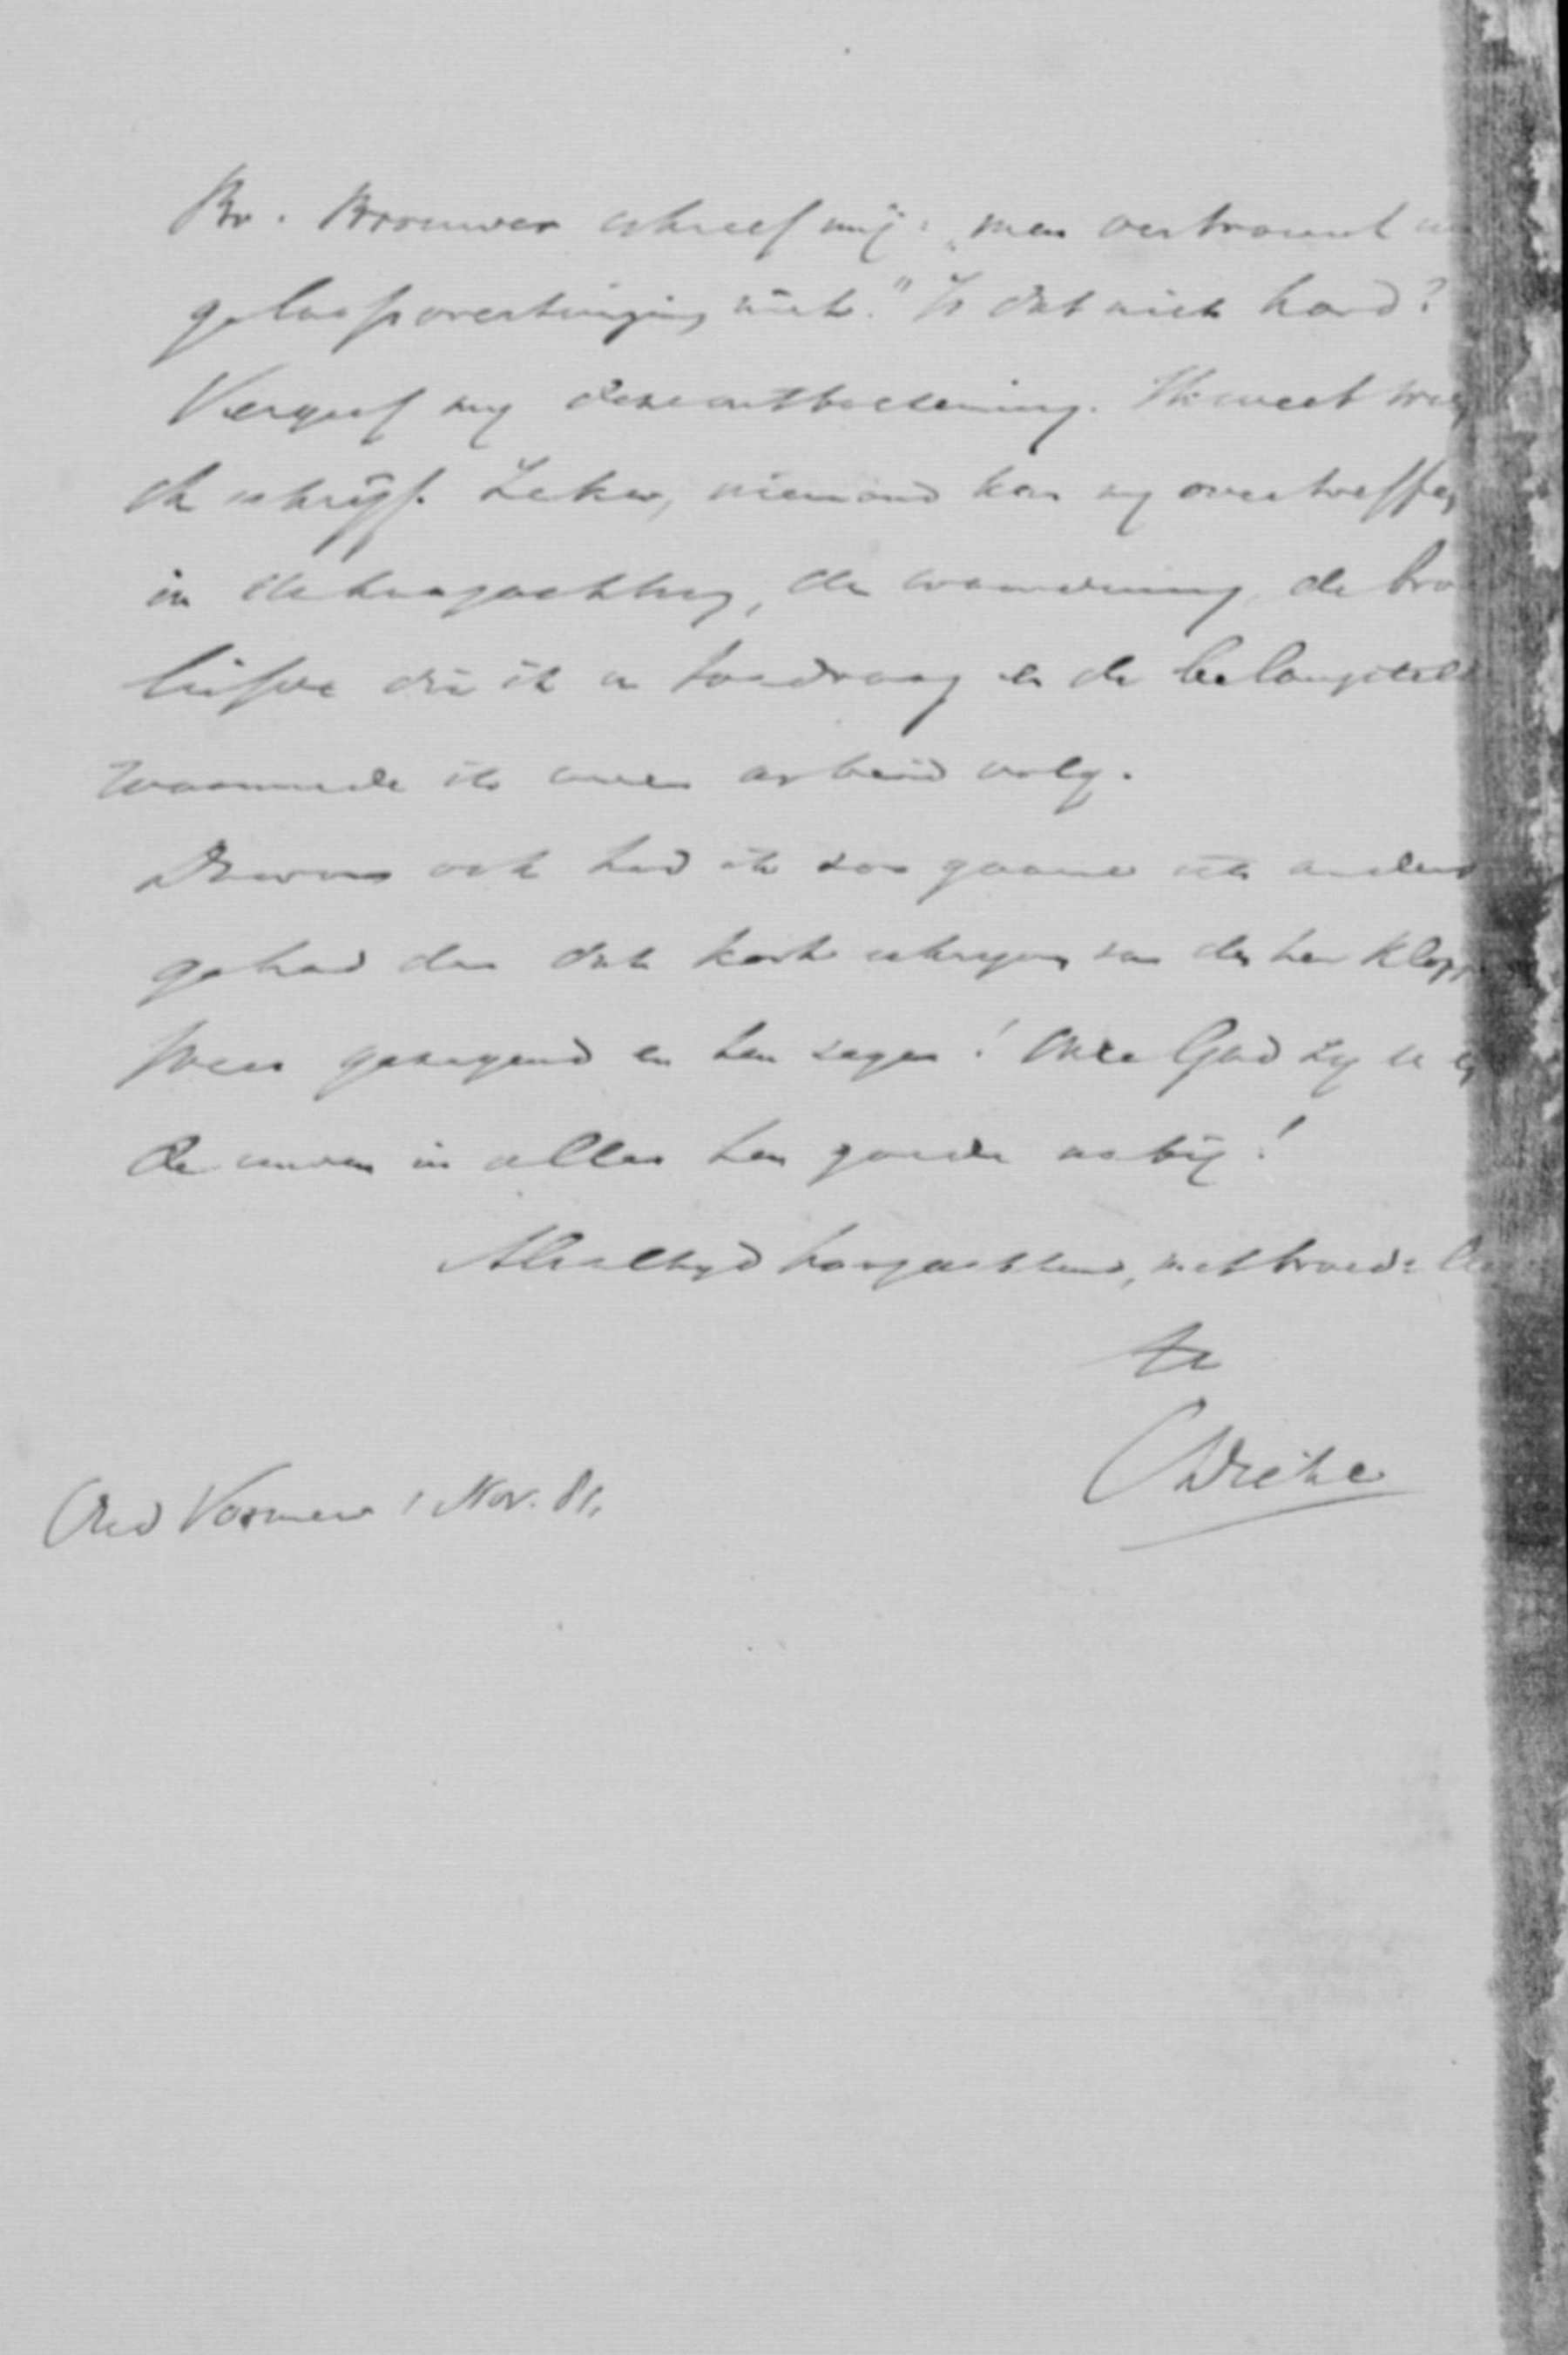 Br. Brouwer schreef mij: „men vertrouwt uw
geloofsovertuiging niet." Is dat niet hard?
Vergeef my deze ontboezeming. Ik weet wien
ik schrijf. Zeker, niemand kan my overtreffen
in de hoogachting, de waardeering, de broe
liefde die ik u toedraag en de belangstell
waarmede ik uwen arbeid volg.
Daarom ook had ik zoo gaarne iets anders
gehad dan dat kort schrijven van den heer Klop
Wees gezegend en ten zegen! Onze God zy u en
de uwen in alles ten goede nabij!
Als altyd hoogachtend, met broed:
tt
Oud Vosmeer 1 Nov. 81.